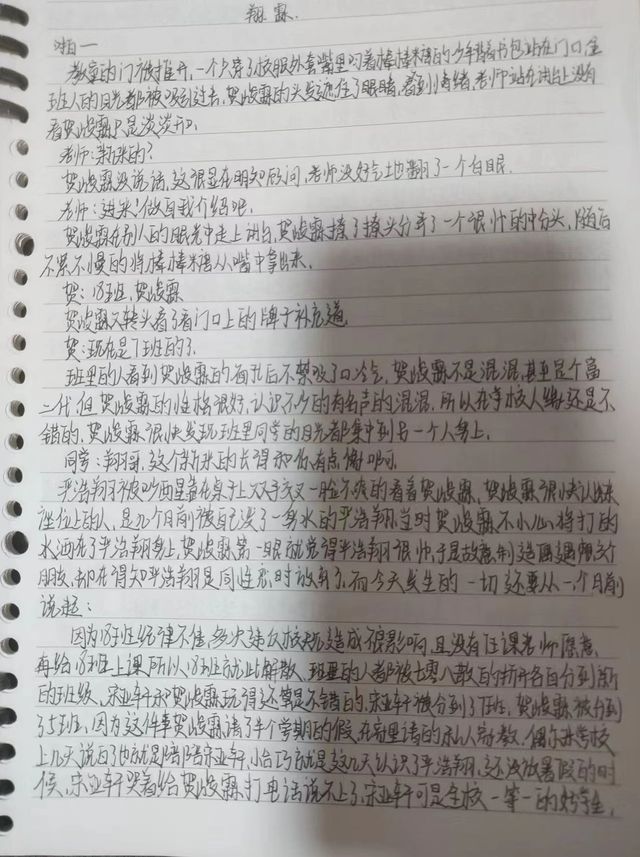 翔霖.
啪一
教室的门被推开,一个只穿了校服外套嘴里叼着棒棒糖的少年背着书包站在门口,全
班人的目光都被吸引过去,贺峻霖的头发遮住了眼睛,看到情绪,老师站在讲台上没有
看贺峻霖只是淡淡开口.
老师:新来的?
贺峻霖没说话,这很显在明知顾问,老师没好气地翻了一个白眼.
老师:进来!做自我介绍吧.
贺峻霖在别人的眼光中走上讲台,贺峻霖撩了撩头分弄了一个很帅的中分头,随后
不紧不慢的将棒棒糖从嘴中拿出来.
贺:18班,贺峻霖
贺峻霖又转头看了看门口上的牌子补充道
贺:现在是7班的了.
班里的人看到贺峻霖的面孔后不禁吸了口冷气,贺峻霖不是混混,甚至是个富
二代,但贺峻霖的性格很好,认识不少的有名声的混混,所以在学校人缘还是不
错的,贺峻霖很快发现班里同学的目光都集中到另一个人身上.
同学:翔哥,这个新来的长得和你有点像啊.
严浩翔被吵醒靠在桌子上双手交叉一脸不爽的看着贺峻霖,贺峻霖很快认出
座位上的人,是几个月前被自己泼了一身水的严浩翔当时贺峻霖不小心将打的
水洒在了严浩翔身上,贺峻霖第一眼就觉得严浩翔很帅,于是故意制造偶遇想交个
朋友,却在得知严浩翔是同性恋时放弃了.而今天发生的一切还要从一个月前
说起:
因为18班纪律不佳,多次违反校规造成不良影响,且没有任课老师愿意
再给18班上课所以,18班就此解散,班里的人都被七零八散的拆开各自分到新
的班级,宋亚轩和贺峻霖玩得还算是不错的,宋亚轩被分到了7班,贺峻霖被分到
了5班,因为这件事贺峻霖请了半个学期的假,在家里请的私人家教,偶尔来学校
上几天说白了也就是陪陪宋亚轩,恰巧就是这几天认识了严浩翔,还没放暑假的时
候,宋亚轩哭着给贺峻霖打电话说不上了,宋亚轩可是全校一等一的好学生,